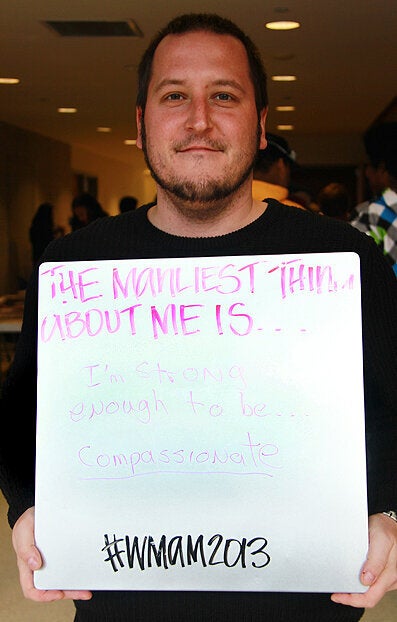 THE MANLIEST THING
ABOUT ME IS...
I'm STRONG
enough to be...
Compassionate
#WMAM2013